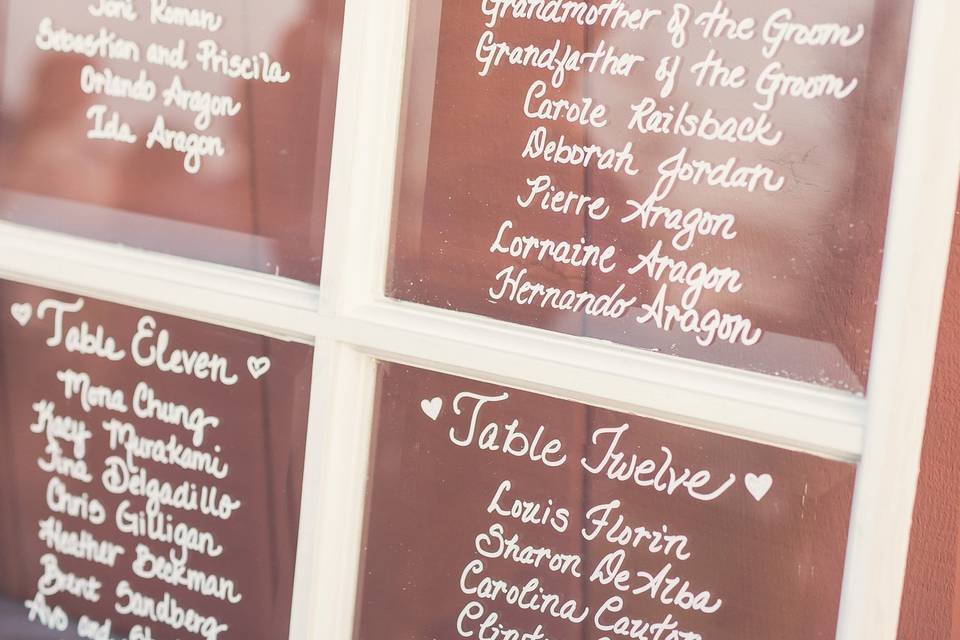 Toni Roman
Sebastian and Priscila
Orlando Aragon
Ida Aragon
Grandmother of the Groom
Grandfather of the Groom
Carole Railsback
Deborah Jordan
Pierre Aragon
Lorraine Aragon
Hernando Aragon
Table Eleven
Mona Chung
Kacy Murakami
Tina Delgadillo
Chris Gilligan
Heather Beekman
Brent Sandberg
and
Table Twelve
Louis Florin
Sharon De Alba
Carolina